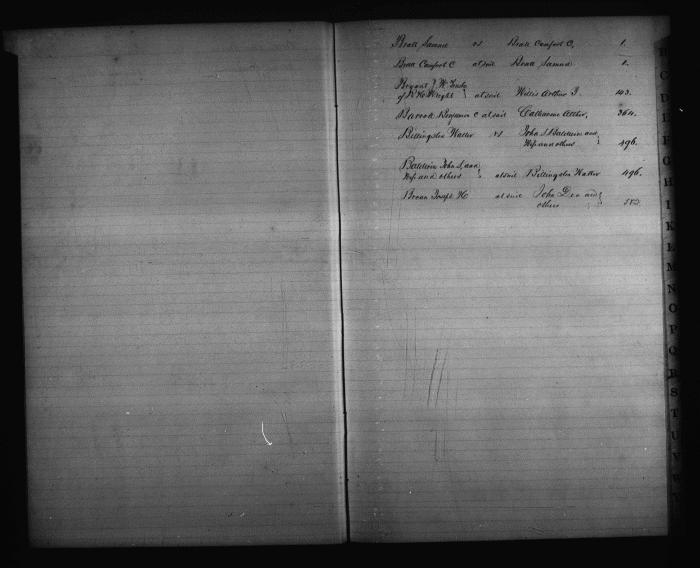 Beall Samuel vs Beall Comfort C, 1.
Beall Comfort C at suit Beall Samuel 1.
Bryant J. W. Trustee
of W. H. Wright } at suit Willis Arthur J. 143.
Barrott Benjamin C at suit Catharine Atther, 364.
Billingslea Walter vs John S. Baldwin and
Wife and others } 496.
Baldwin John S. and
Wife and others } at suit Billingslea Walter 496.
Brown Joseph H at suit John Dea and
others } 582.
C
D
E
F
G
H
I
K
L
M
N
O
P
Q
R
S
T
U
V